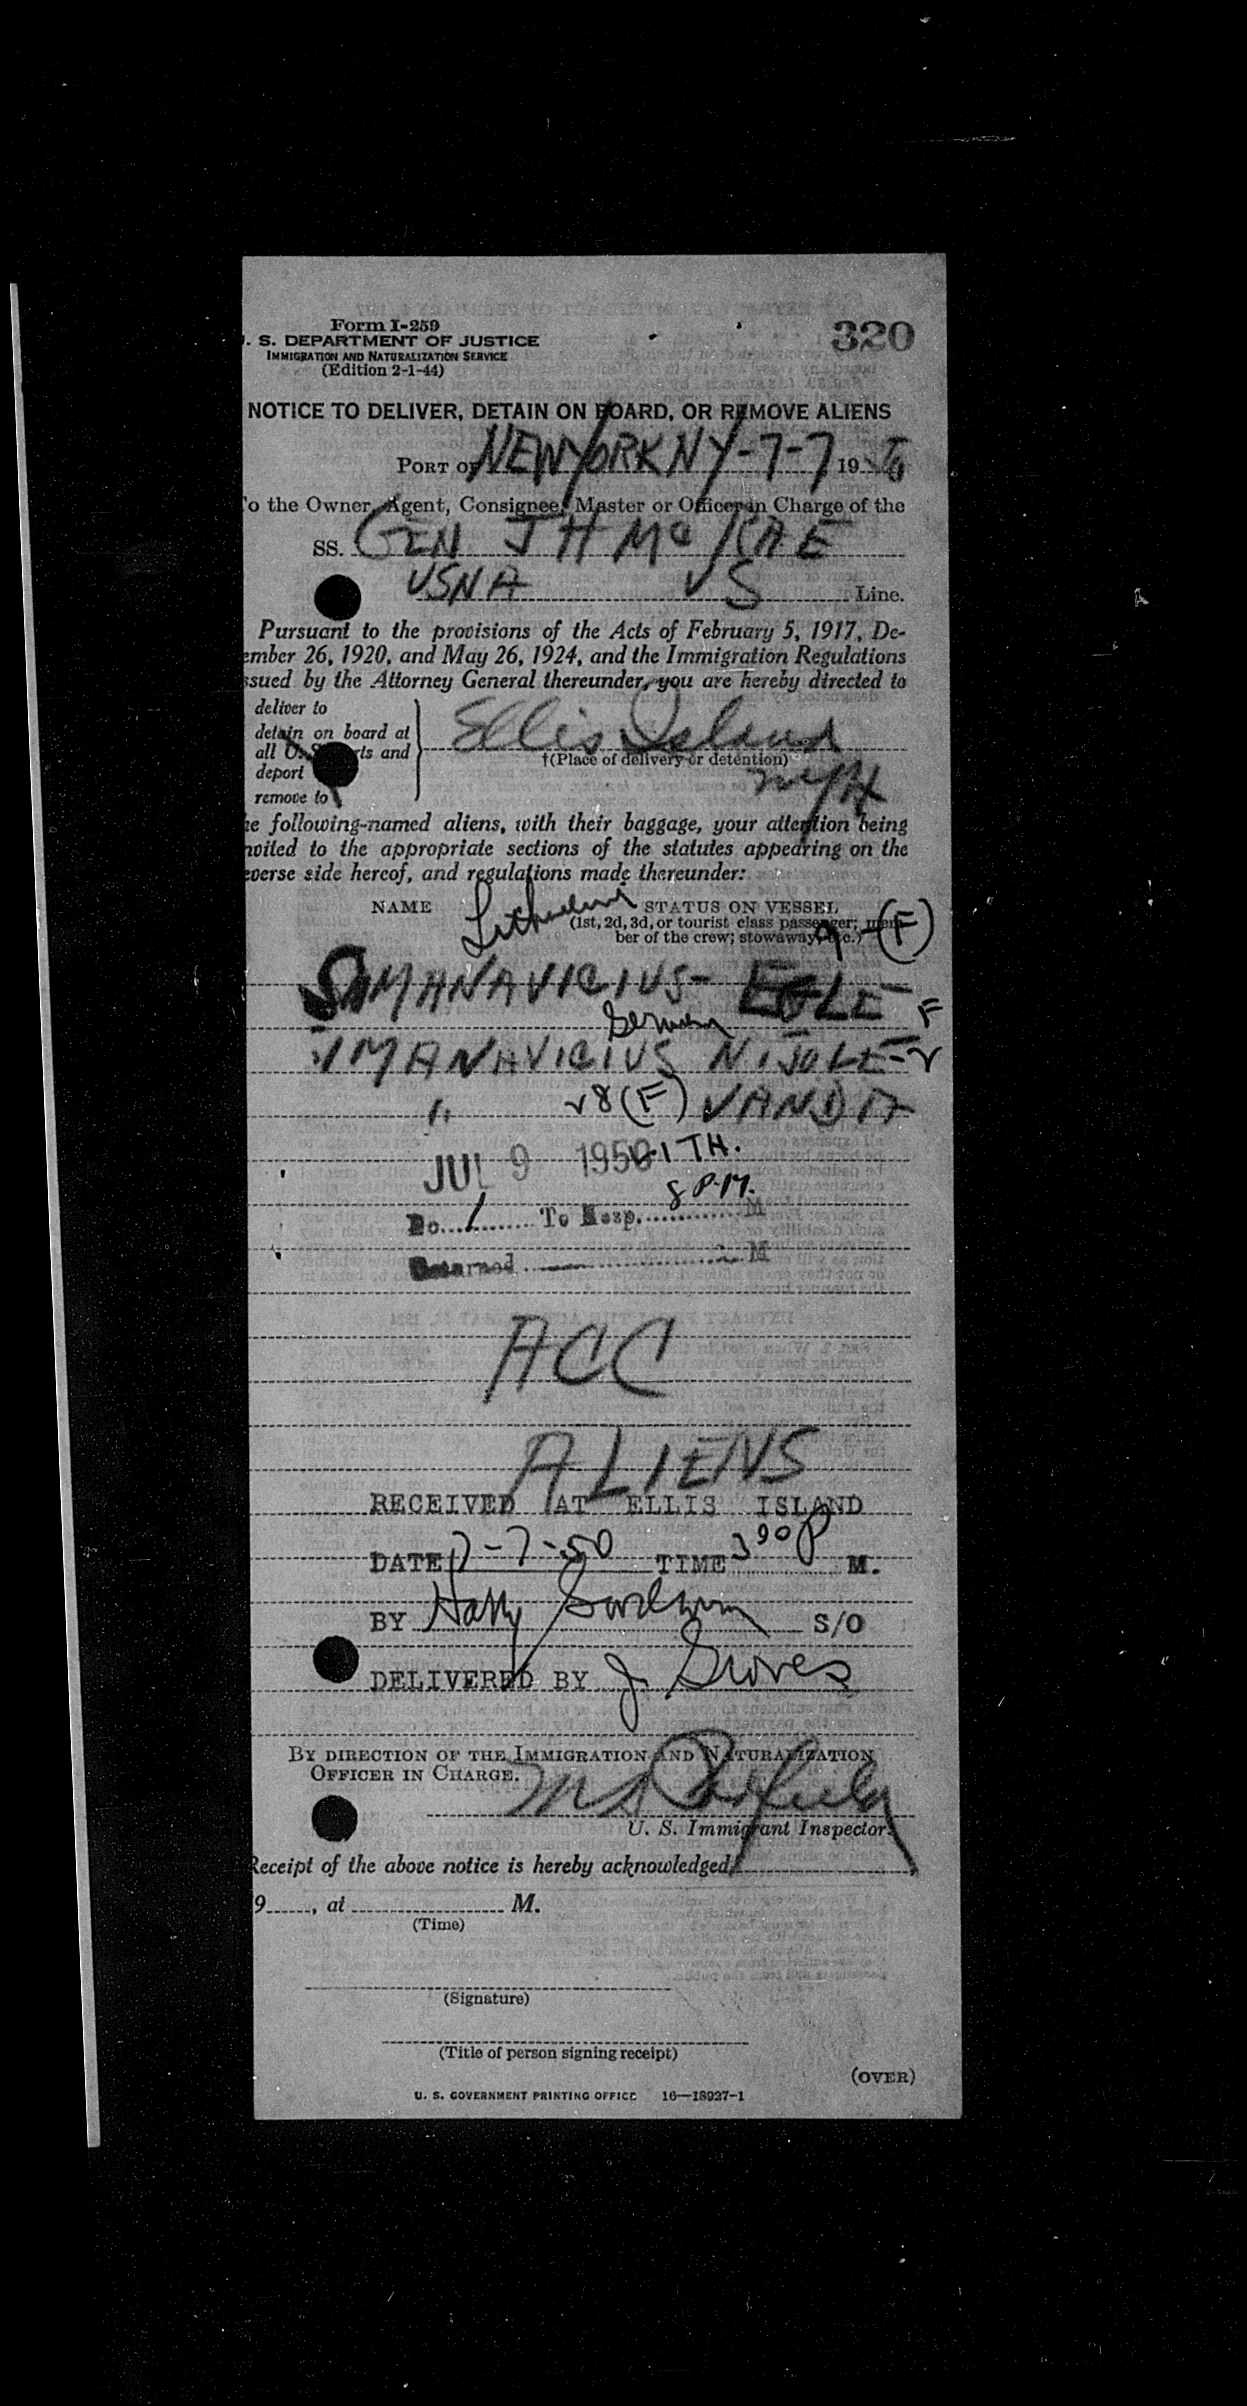 Form I-259
. S. DEPARTMENT OF JUSTICE
IMMIGRATION AND NATURALIZATION SERVICE
(Edition 2-1-44)
320
NOTICE TO DELIVER, DETAIN ON BOARD, OR REMOVE ALIENS
PORT OF NEW YORK NY-7-7 1950
To the Owner, Agent, Consignee, Master or Officer in Charge of the
SS. GEN J H McRAE
USNA US Line.
Pursuant to the provisions of the Acts of February 5, 1917, De-
ember 26, 1920, and May 26, 1924, and the Immigration Regulations
ssued by the Attorney General thereunder, you are hereby directed to
deliver to
detain on board at
all U.S. ports and
deport
remove to
Ellis Island
†(Place of delivery or detention)
NYH
he following-named aliens, with their baggage, your attention being
nvited to the appropriate sections of the statutes appearing on the
everse side hereof, and regulations made thereunder:
NAME
STATUS ON VESSEL
(1st, 2d, 3d, or tourist class passenger; mem-
ber of the crew; stowaway, etc.)
9 (F)
SIMANAVICIUS- EGLE
German F
IMANAVICIUS NIJOLE-
" 8 (F) VANDA
JUL 9 1950 LITH.
8 P.M.
Do. 1 To Hosp. M
Returned M
ACC
ALIENS
RECEIVED AT ELLIS ISLAND
DATE 7-7-50 TIME 3 00 P M.
BY Harry S/O
DELIVERED BY J. Groves
BY DIRECTION OF THE IMMIGRATION AND NATURALIZATION
OFFICER IN CHARGE.
U. S. Immigrant Inspector.
Receipt of the above notice is hereby acknowledged
9 , at M.
(Time)
(Signature)
(Title of person signing receipt)
(OVER)
U. S. GOVERNMENT PRINTING OFFICE 16—18927-1